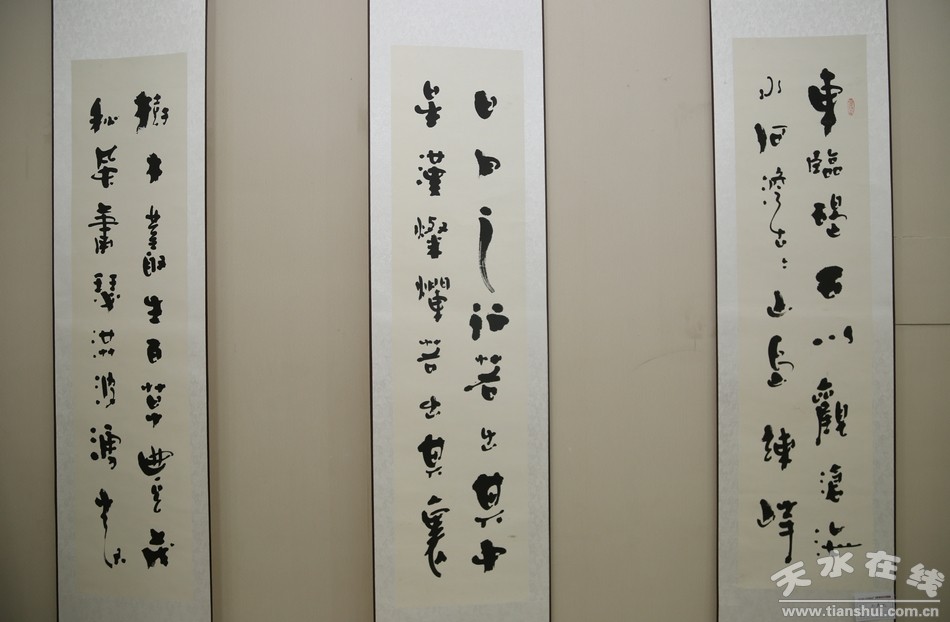 東臨碣石以觀滄海
水何澹々山島竦峙
日月之行若出其中
星漢燦爛若出其裏
樹木叢生百草豐茂
秋風蕭瑟洪波湧起
天水在线
www.tianshui.com.cn